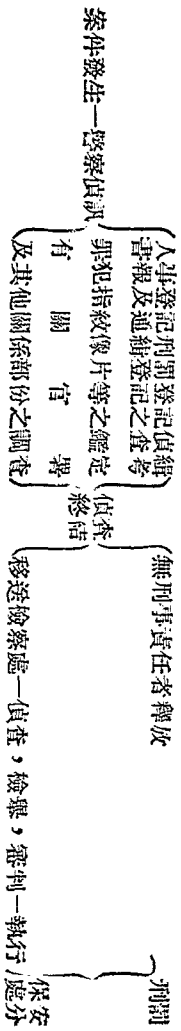 案件發生—警察偵訊
人事登記刑罰登記偵緝
書報及通緝登記之查考
罪犯指紋像片等之鑑定
有關官署
及其他關係部份之調查
偵查
終結
無刑事責任者釋放
移送檢察處—偵查,檢舉,審判—執行
刑罰
保安
處分